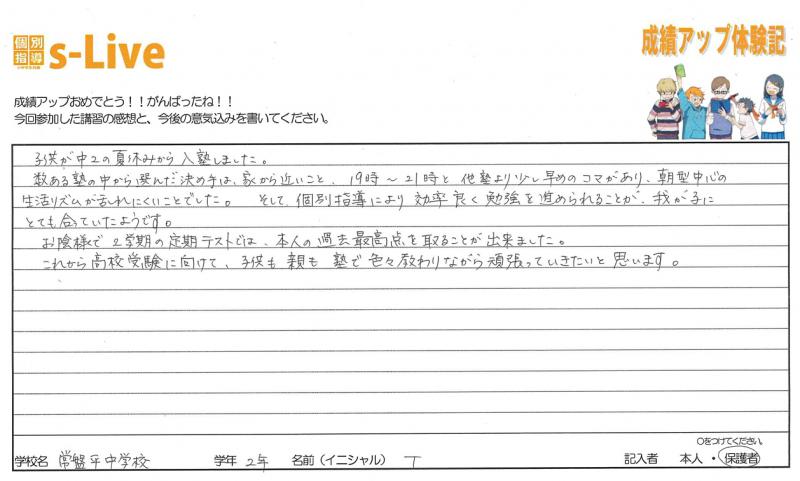 個別
指導
s-Live
成績アップ体験記
成績アップおめでとう!!がんばったね!!
今回参加した講習の感想と、今後の意気込みを書いてください。
子供が中2の夏休みから入塾しました。
数ある塾の中から選んだ決め手は、家から近いこと、19時～21時と他塾より少し早めのコマがあり、朝型中心の
生活リズムが乱れにくいことでした。そして、個別指導により効率良く勉強を進められることが、我が子に
とても合っていたようです。
お陰様で2学期の定期テストでは、本人の過去最高点を取ることが出来ました。
これから高校受験に向けて、子供も親も塾で色々教わりながら頑張っていきたいと思います。
○をつけてください。
学校名 常盤平中学校 学年 2年 名前(イニシャル) T 記入者 本人・保護者